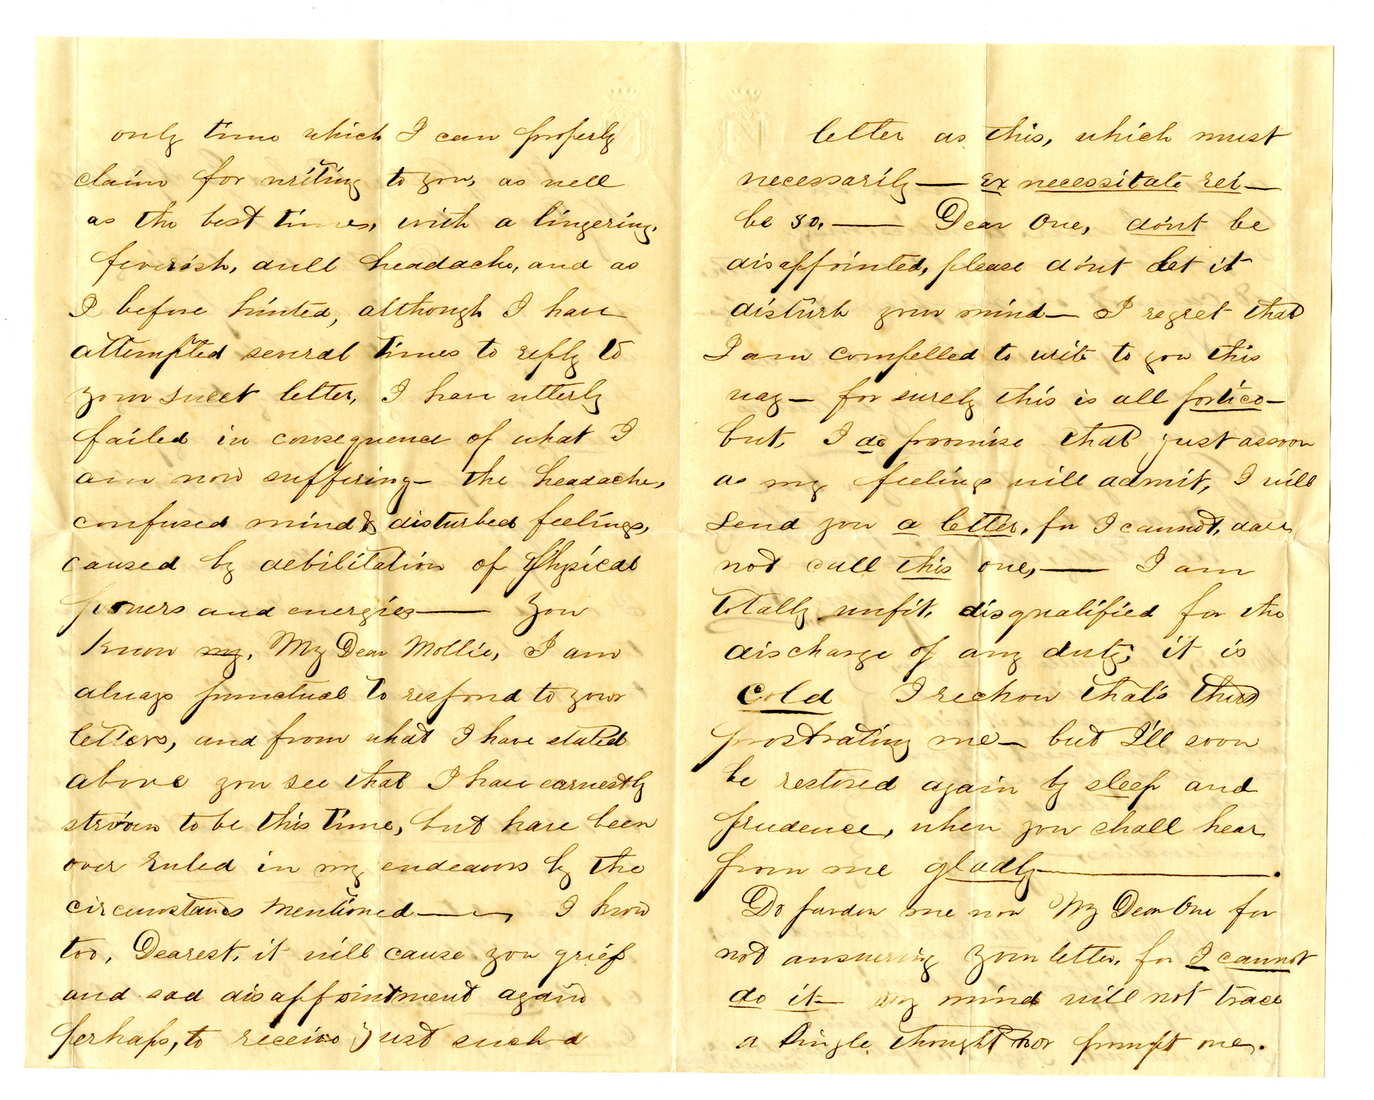 only time which I can properly
claim for writing to you, as well
as the best times, with a lingering,
feverish, dull headache, and as
I before hinted, although I have
attempted several times to reply to
your sweet letter, I have utterly
failed in consequence of what I
am now suffering— the headache,
confused mind & disturbed feelings,
caused by debilitation of physical
powers and energies—— You
know my, My Dear Mollie, I am
always punctual to respond to your
letters, and from what I have stated
above you see that I have earnestly
striven to be this time, but have been
over ruled in my endeavors by the
circumstances mentioned—— I know
too, Dearest, it will cause you grief
and sad disappointment again
perhaps, to receive just such a
letter as this, which must
necessarily— ex necessitate rei—
be so.—— Dear One, dont be
disappointed, please dont let it
disturb your mind— I regret that
I am compelled to write to you this
way— for surely this is all
but, I do promise that just as soon
as my feelings will admit, I will
send you a letter, for I cannot, dare
not call this one,—— I am
totally unfit, disqualified for the
discharge of any duty; it is
cold I reckon that's thus
prostrating me— but I'll soon
be restored again by sleep and
prudence, when you shall hear
from me gladly———.
Do pardon me now My Dear One for
not answering your letter, for I cannot
do it— my mind will not trace
a single thought nor prompt one.